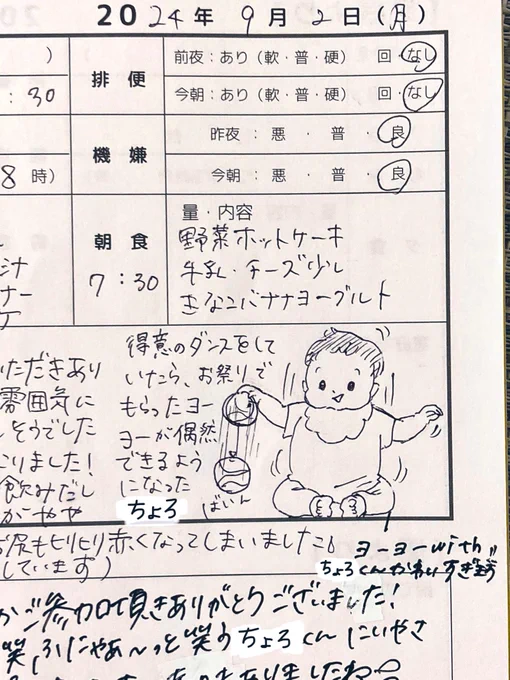 2024年 9月 2日(月)
)
:30
排便
前夜:あり(軟・普・硬) 回・なし
今朝:あり(軟・普・硬) 回・なし
8時)
機嫌
昨夜:悪・普・良
今朝:悪・普・良
汁
ナー
朝食
7:30
量・内容
野菜ホットケーキ
牛乳・チーズ少し
きなこバナナヨーグルト
いただきあり
雰囲気に
しそうでした
なりました!
飲みだし
がやや
得意のダンスをして
いたら、お祭りで
もらったヨー
ヨーが偶然
できるよう
になった
ちょろ
ばいん
お尻もヒリヒリ赤くなってしまいました
しています)
ヨーヨーwith
ちょろくんかわいすぎます
ご参加頂きありがとうございました!
笑 ふにゃぁ〜っと笑うちょろくんにいやさ
ありましたね